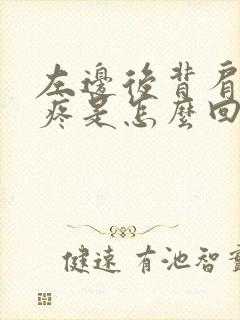 左邊後背肩
疼是怎麼回
健速 有池智實